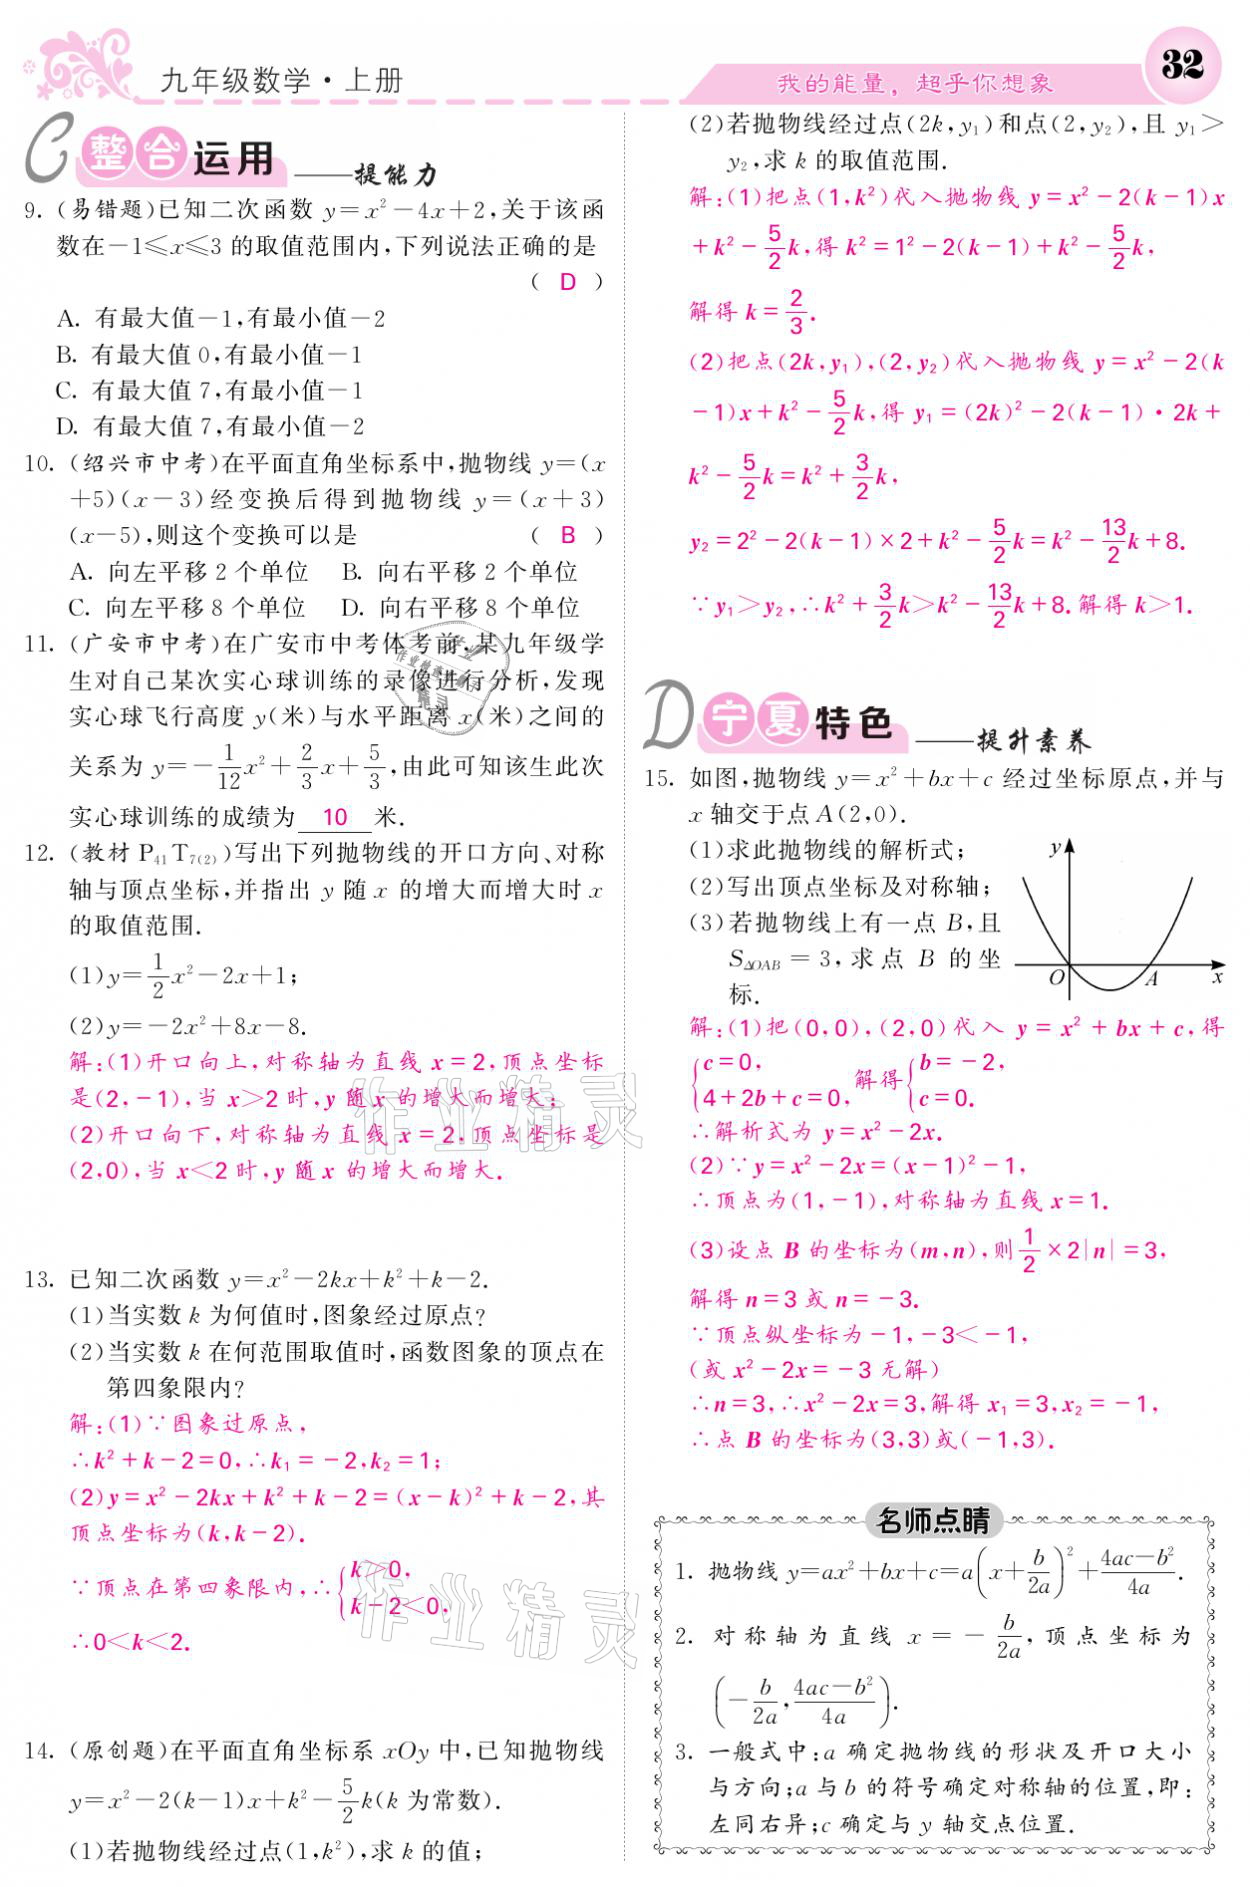 九年级数学·上册
我的能量，超乎你想象
32
C 整合运用 ——提能力
9. (易错题)已知二次函数 y=x²-4x+2,关于该函
数在-1≤x≤3 的取值范围内,下列说法正确的是
( D )
A. 有最大值-1,有最小值-2
B. 有最大值 0,有最小值-1
C. 有最大值 7,有最小值-1
D. 有最大值 7,有最小值-2
10. (绍兴市中考)在平面直角坐标系中,抛物线 y=(x
+5)(x-3)经变换后得到抛物线 y=(x+3)
(x-5),则这个变换可以是 ( B )
A. 向左平移 2 个单位 B. 向右平移 2 个单位
C. 向左平移 8 个单位 D. 向右平移 8 个单位
11. (广安市中考)在广安市中考体考前,某九年级学
生对自己某次实心球训练的录像进行分析,发现
实心球飞行高度 y(米)与水平距离 x(米)之间的
关系为 y=-1/12x²+2/3x+5/3,由此可知该生此次
实心球训练的成绩为 10 米.
12. (教材 P41 T7(2))写出下列抛物线的开口方向、对称
轴与顶点坐标,并指出 y 随 x 的增大而增大时 x
的取值范围.
(1)y=1/2x²-2x+1;
(2)y=-2x²+8x-8.
解:(1)开口向上,对称轴为直线 x=2,顶点坐标
是(2,-1),当 x>2 时,y 随 x 的增大而增大;
(2)开口向下,对称轴为直线 x=2,顶点坐标是
(2,0),当 x<2 时,y 随 x 的增大而增大.
13. 已知二次函数 y=x²-2kx+k²+k-2.
(1)当实数 k 为何值时,图象经过原点?
(2)当实数 k 在何范围取值时,函数图象的顶点在
第四象限内?
解:(1)∵图象过原点,
∴k²+k-2=0,∴k₁=-2,k₂=1;
(2)y=x²-2kx+k²+k-2=(x-k)²+k-2,其
顶点坐标为(k,k-2).
∵顶点在第四象限内,∴{k>0,
k-2<0,
∴0<k<2.
14. (原创题)在平面直角坐标系 xOy 中,已知抛物线
y=x²-2(k-1)x+k²-5/2k(k 为常数).
(1)若抛物线经过点(1,k²),求 k 的值;
(2)若抛物线经过点(2k,y₁)和点(2,y₂),且 y₁>
y₂,求 k 的取值范围.
解:(1)把点(1,k²)代入抛物线 y=x²-2(k-1)x
+k²-5/2k,得 k²=1²-2(k-1)+k²-5/2k,
解得 k=2/3.
(2)把点(2k,y₁),(2,y₂)代入抛物线 y=x²-2(k
-1)x+k²-5/2k,得 y₁=(2k)²-2(k-1)·2k+
k²-5/2k=k²+3/2k,
y₂=2²-2(k-1)×2+k²-5/2k=k²-13/2k+8.
∵y₁>y₂,∴k²+3/2k>k²-13/2k+8.解得 k>1.
D 宁夏特色 ——提升素养
15. 如图,抛物线 y=x²+bx+c 经过坐标原点,并与
x 轴交于点 A(2,0).
(1)求此抛物线的解析式;
(2)写出顶点坐标及对称轴;
(3)若抛物线上有一点 B,且
S△OAB=3,求点 B 的坐
标.
y
O A x
解:(1)把(0,0),(2,0)代入 y=x²+bx+c,得
{c=0,
4+2b+c=0, 解得{b=-2,
c=0.
∴解析式为 y=x²-2x.
(2)∵y=x²-2x=(x-1)²-1,
∴顶点为(1,-1),对称轴为直线 x=1.
(3)设点 B 的坐标为(m,n),则1/2×2|n|=3,
解得 n=3 或 n=-3.
∵顶点纵坐标为-1,-3<-1,
(或 x²-2x=-3 无解)
∴n=3,∴x²-2x=3,解得 x₁=3,x₂=-1,
∴点 B 的坐标为(3,3)或(-1,3).
名师点睛
1. 抛物线 y=ax²+bx+c=a(x+b/2a)²+(4ac-b²)/4a.
2. 对称轴为直线 x=-b/2a,顶点坐标为
(-b/2a,(4ac-b²)/4a).
3. 一般式中:a 确定抛物线的形状及开口大小
与方向;a 与 b 的符号确定对称轴的位置,即:
左同右异;c 确定与 y 轴交点位置.
作业精灵
作业精灵